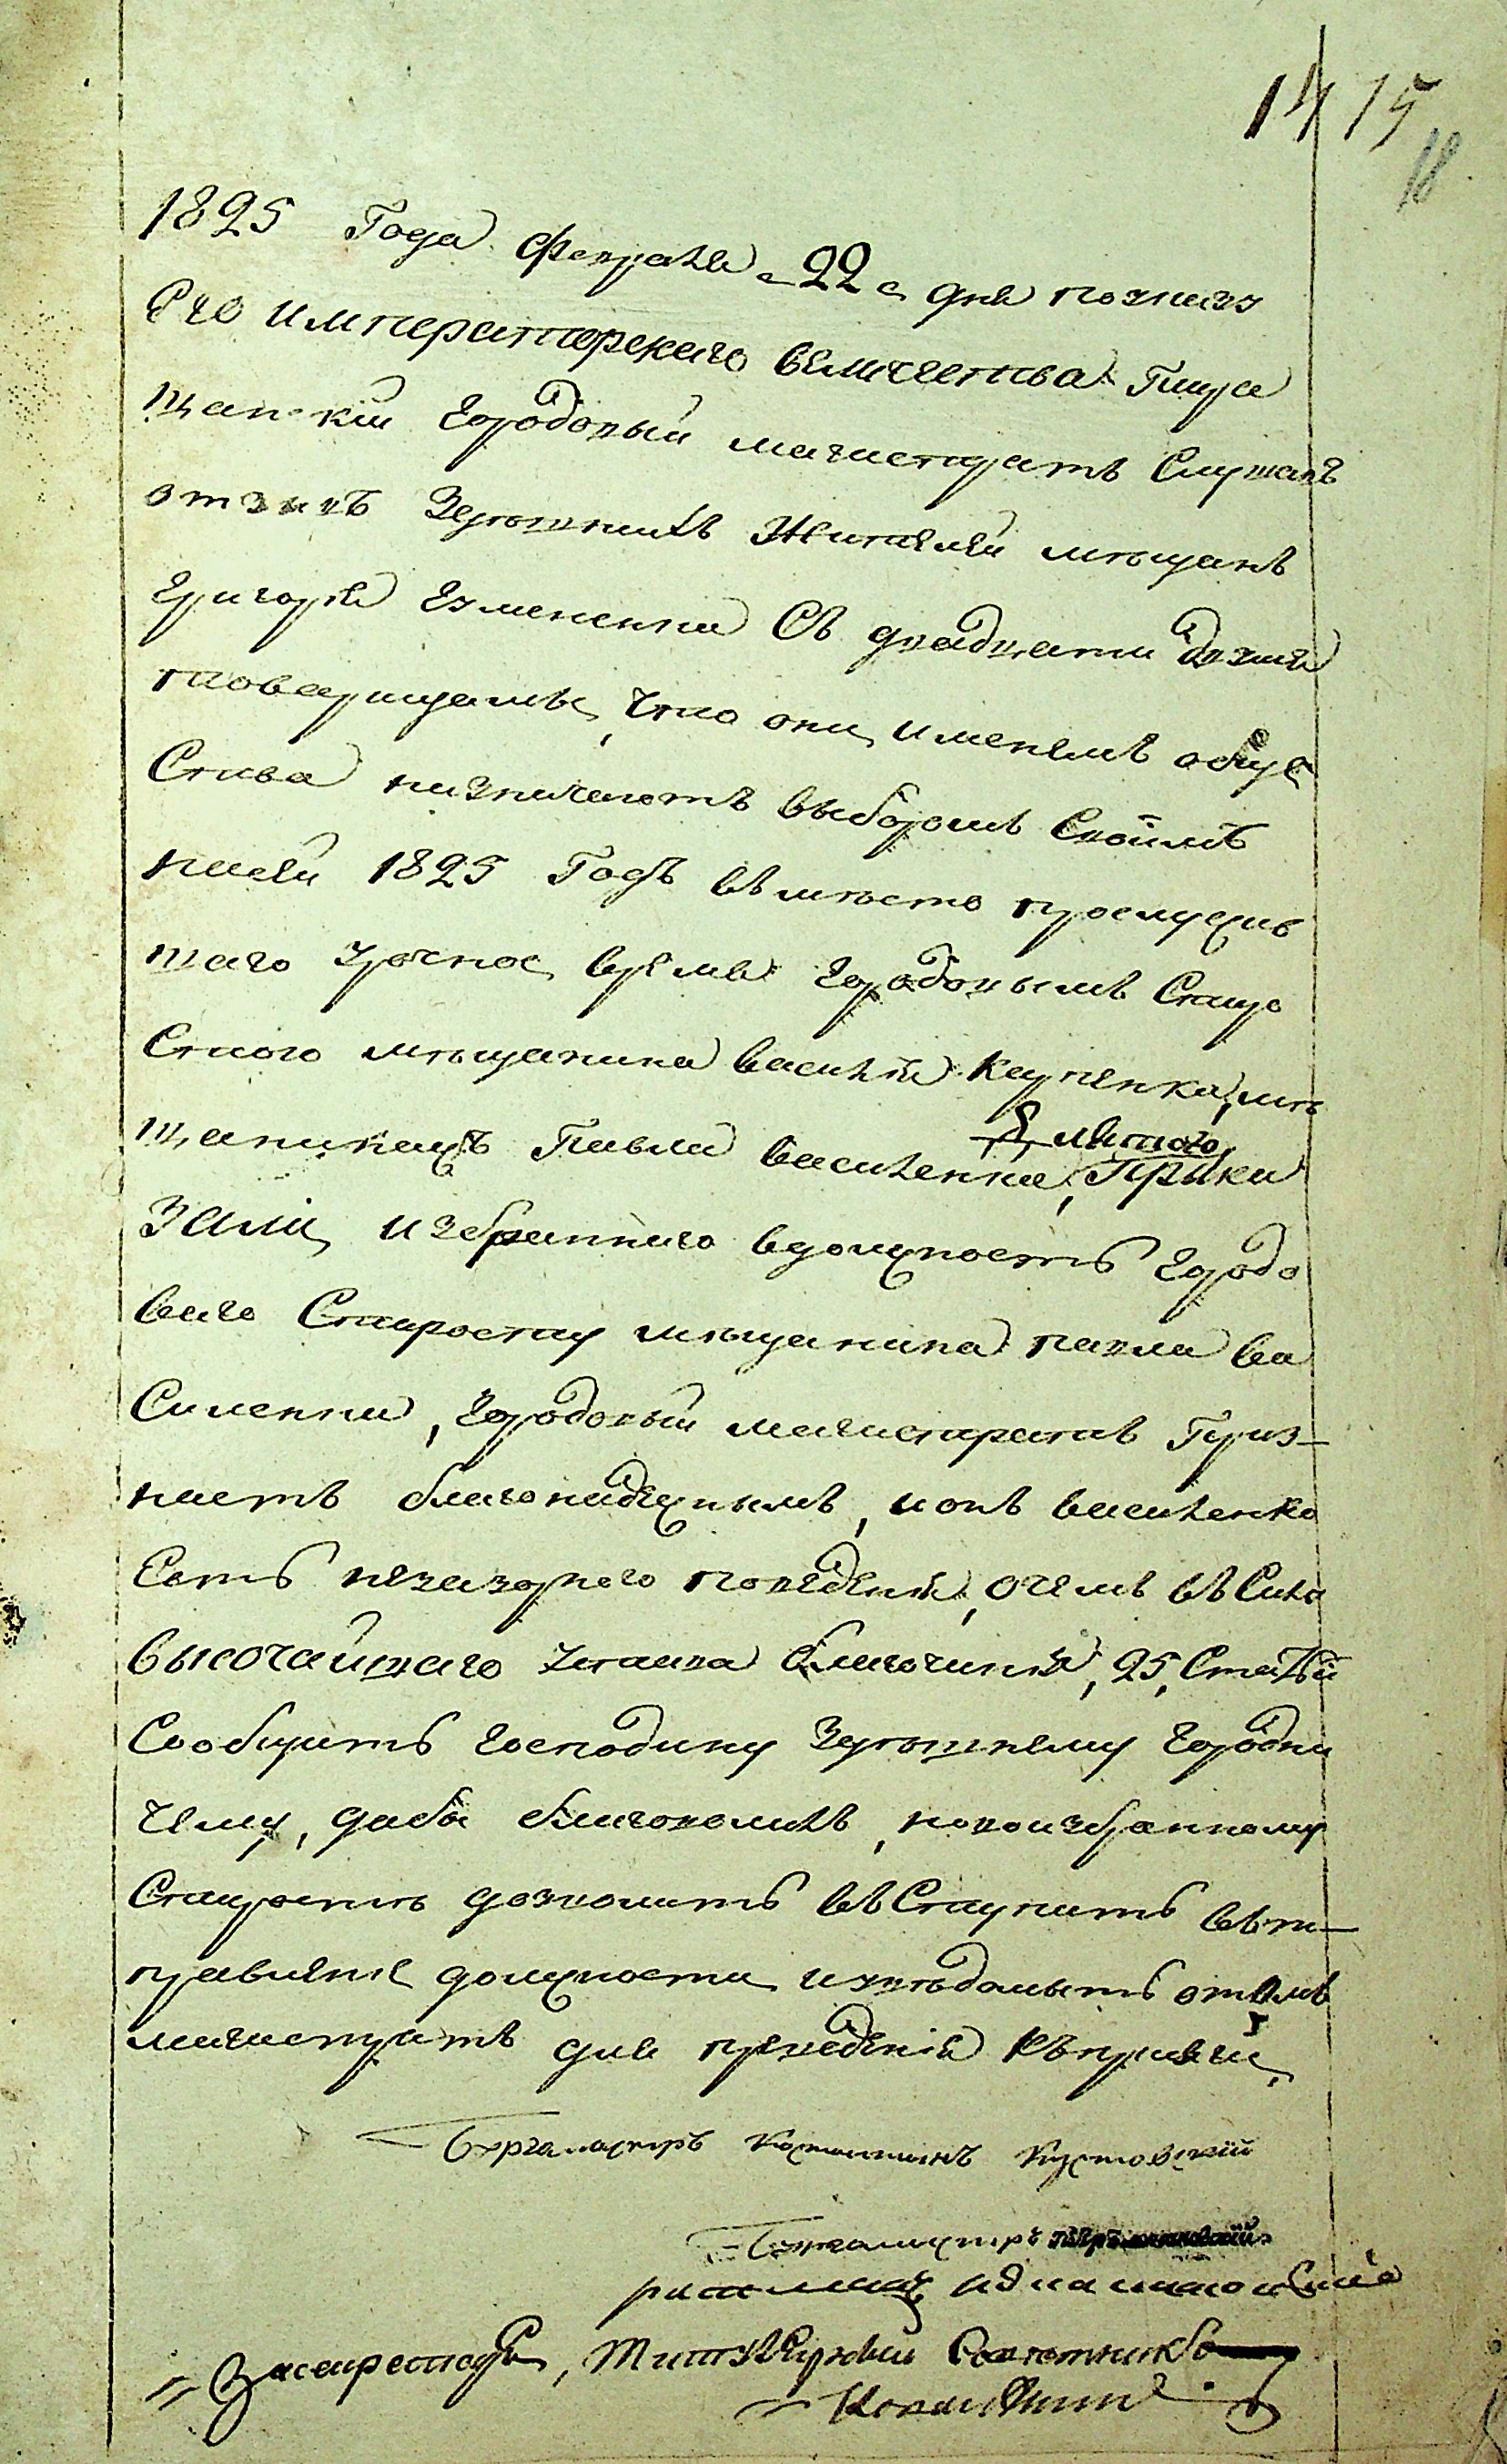 14 15
18
1825 Года февраля 22 дня поуказу
Его императорскаго величества Пиря
тинскій городовый магистратъ Слушавъ
отзывъ здешнихъ жителей мѣщанъ
григорія Езмененка Съ двадцати двумя
товарищамы, что они именемъ обще
Ства назначаютъ выборомъ Своимъ
насей 1825 Годъ вѣместо прослужив
шаго урочное время городовымъ Старо
Стою мѣщанина василія Карпенка, мѣ
щанинажъ Павла василенка, Приказали,
избраннаго вдолжность городо
ваго Старосты мѣщанина павла ва
Силенка, городовый магистратъ Приз-
наетъ благонадежнымъ, ионъ василенко
Есть незазорного поведенія, очемъ въ Силу
высочайшаго устава благочинія, 25, Статьи
Сообщить господину здешнему городни
чему, дабы благоволилъ, новоизбранному
Старостѣ дозволить въСтупить въот-
правленіе должности иуведомыть отомъ
магистратъ для приведенія къприсяги
Бургамистръ Константинъ Кустовскій
Бургамистръ
ратманъ
Засекретаря, Титулярный Советникъ